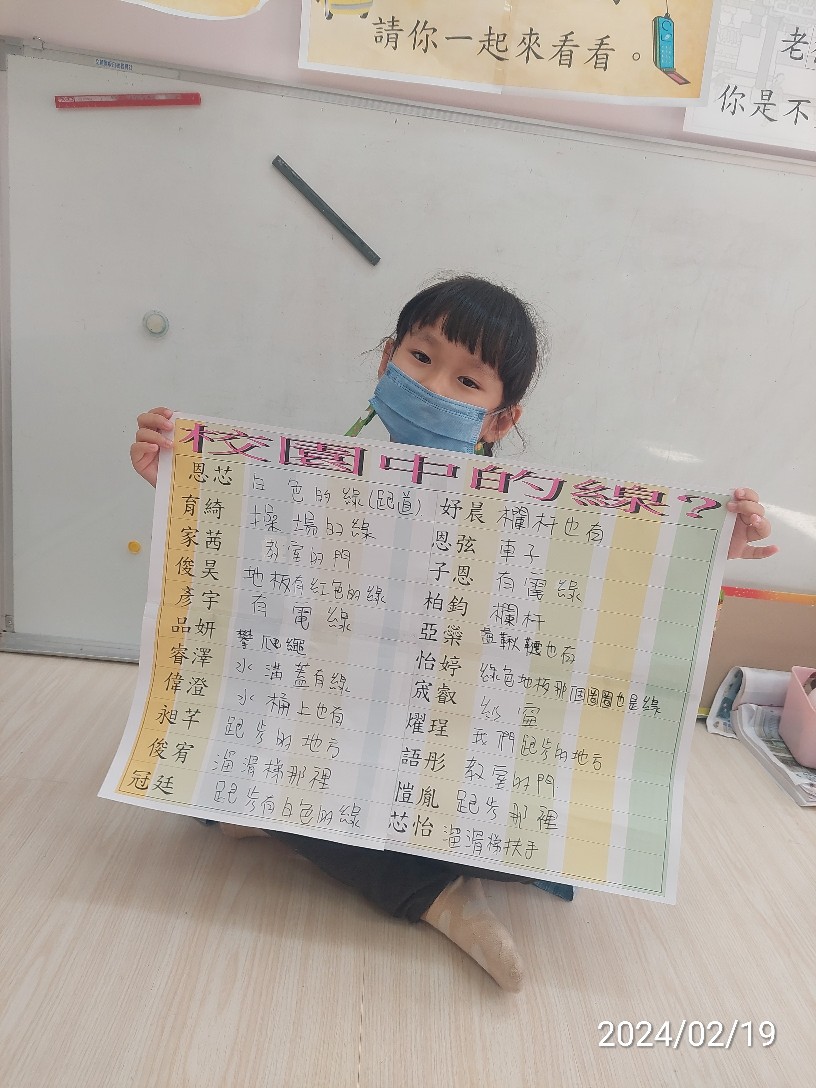 請你一起來看看。
老
你是不
校園中的線?
恩芯 白色的線(跑道)
育綺 操場的線
家茜 教室的門
俊昊 地板有紅色的線
彥宇 有電線
品妍 攀爬繩
睿澤 水溝蓋有線
偉澄 水桶上也有
昶芊 跑步的地方
俊宥 溜滑梯那裡
冠廷 跑步有白色的線
妤晨 欄杆也有
恩弦 車子
子恩 有電線
柏鈞 欄杆
亞藥 盪鞦韆也有
怡婷 綠色地板那個圈圈也是線
宬叡 紗窗
燿珵 我們跑步的地方
語彤 教室的門
愷胤 跑步那裡
芯怡 溜滑梯扶手
2024/02/19